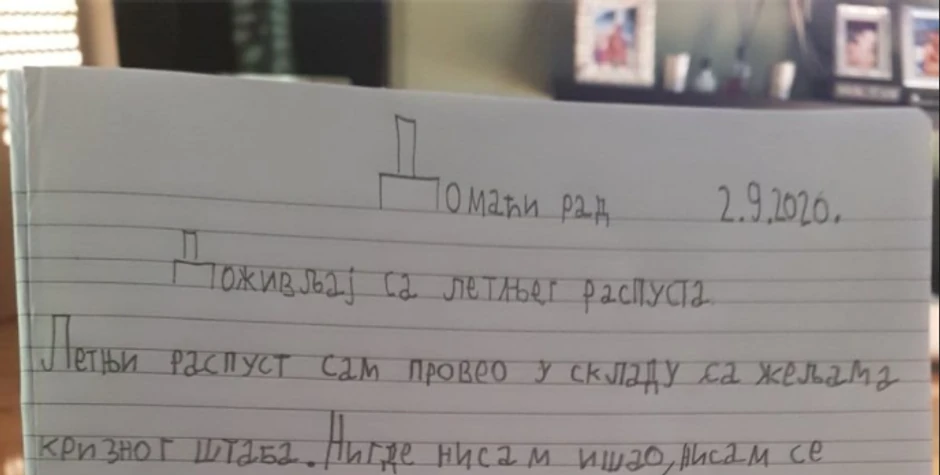 Домаћи рад 2.9.2020.
Доживљај са летњег распуста
Летњи распуст сам провео у складу са жељама
кризног штаба. Нигде нисам ишао, нисам се